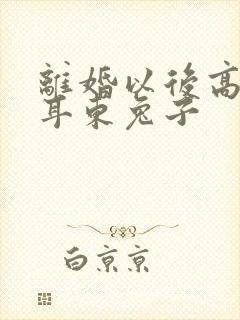 離婚以後高
耳東兔子
白京京